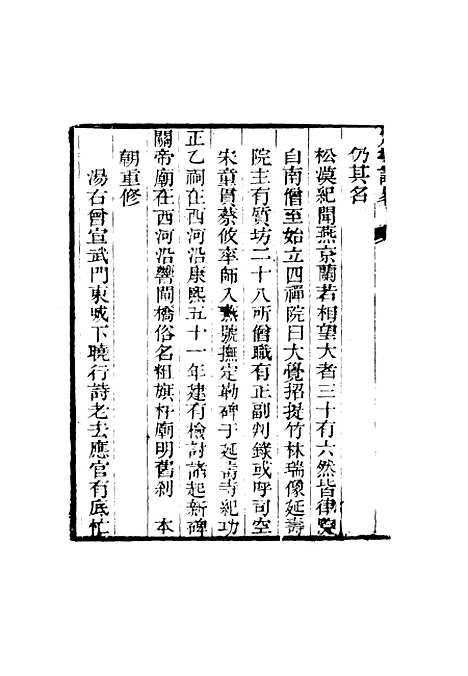 仍其名
松漠紀聞燕京蘭若相望大者三十有六然皆律
自南僧至始立四禪院曰大覺招提竹林瑞像延壽
院主有質坊二十八所僧職有正副判錄或呼司空
宋童貫蔡攸率師入燕號撫定勒碑于延壽寺紀功
正乙祠在西河沿康熙五十一年建有檢討諸起新碑
關帝廟在西河沿響閘橋俗名粗旗杆廟明舊剎 本
朝重修
湯右曾宣武門東城下曉行詩老去應官有底忙